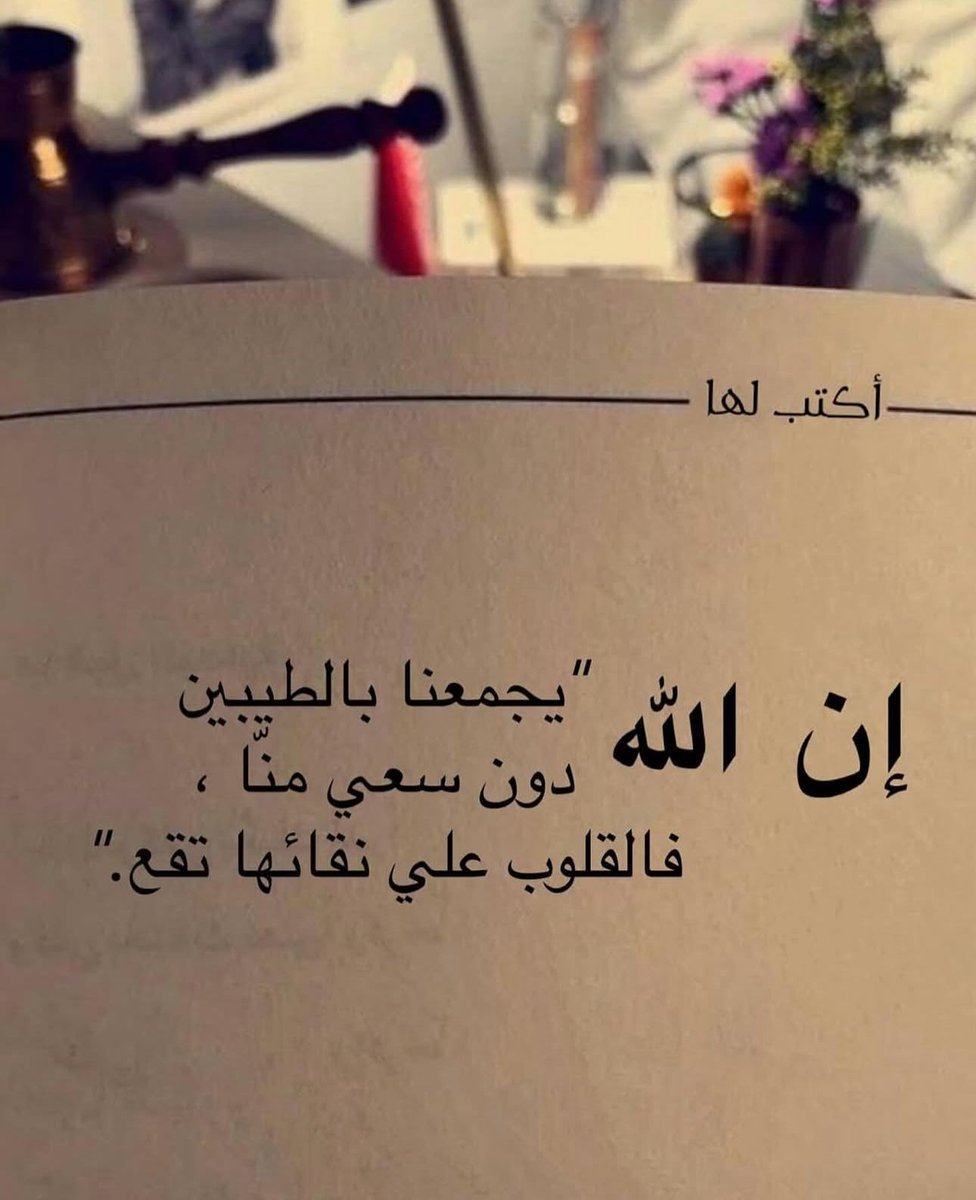 أكتب لها
إن الله "يجمعنا بالطيبين
دون سعي منّا ،
فالقلوب علي نقائها تقع."